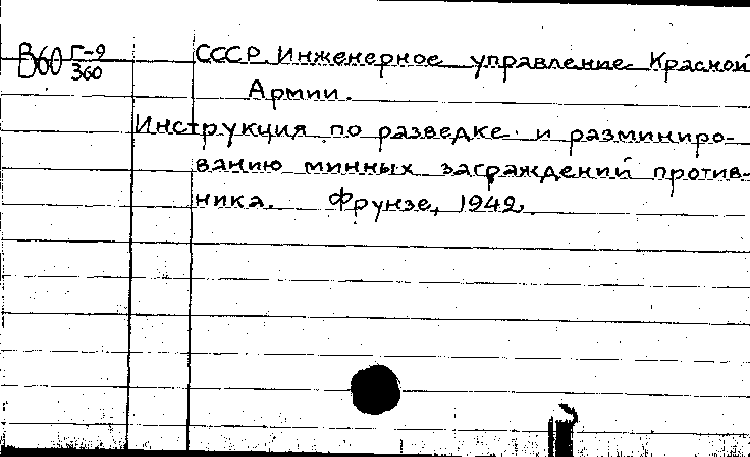 В60 Г-9/360
СССР. Инженерное управление Красной
Армии.
Инструкция по разведке и разминиро-
ванию минных заграждений против-
ника. Фрунзе, 1942.